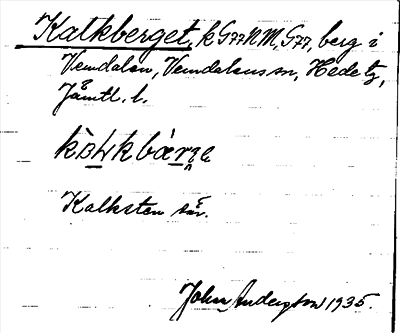 Kalkberget, k G77NM, G77, berg i
Vemdalen, Vemdalens sn, Hede tg,
Jämtl. l.
Kalksten där.
John Anderzon 1935.